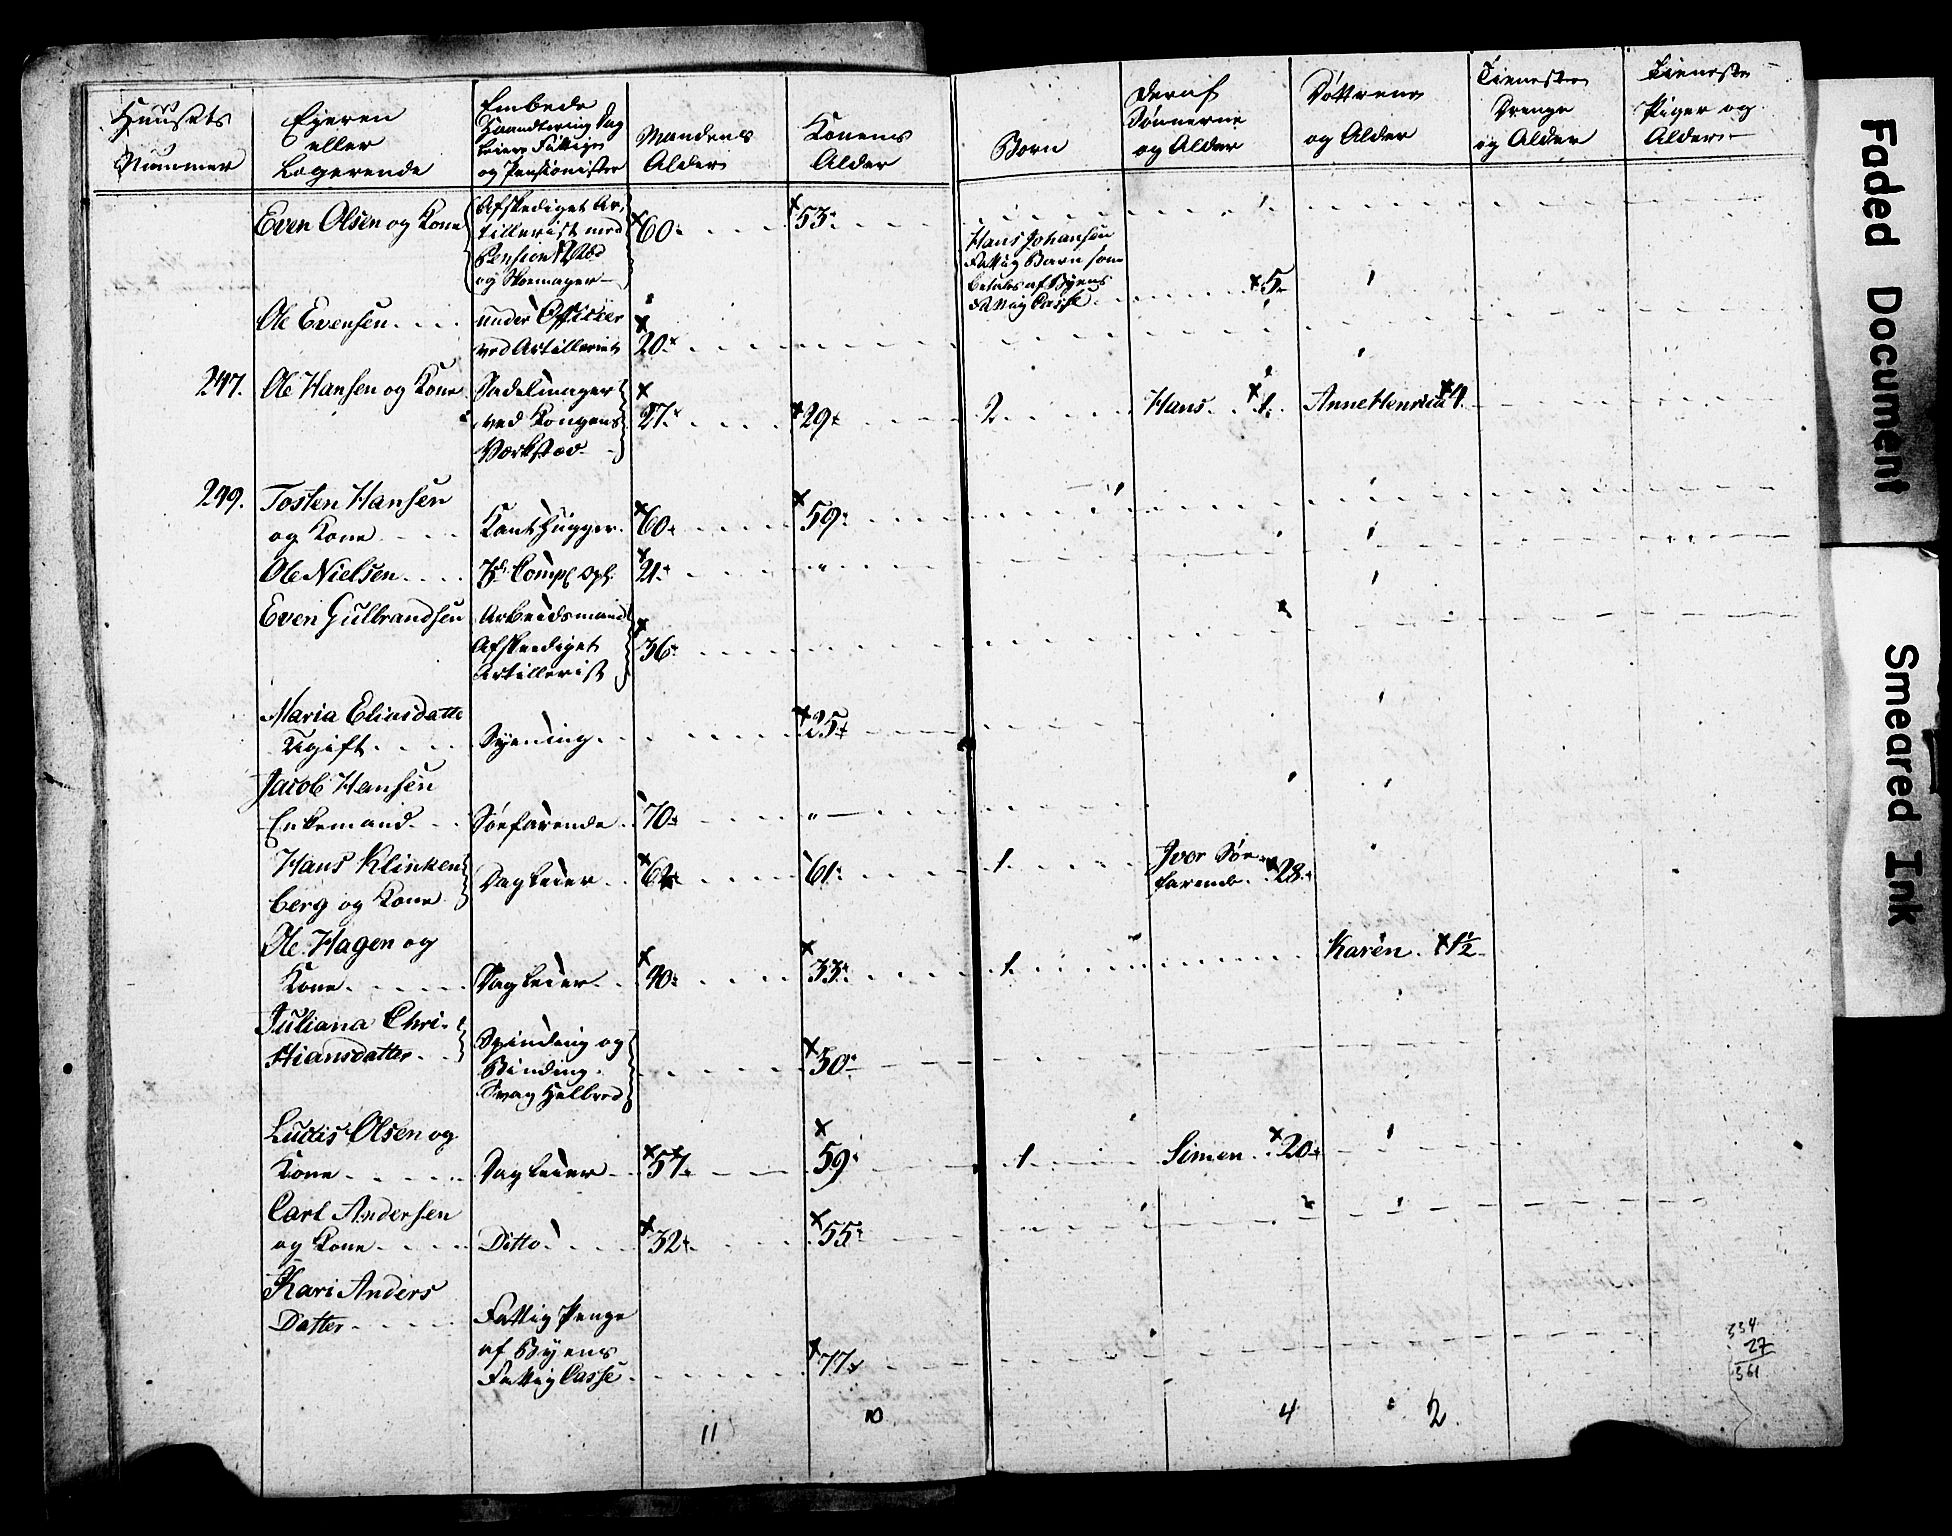 Huusets Nummer
Ejeren eller Logerende
Embede Haandtering Dag leiere Fattige og Pensionister
Mandens Alder
Konens Alder
Børn
Deraf Sønnerne og Alder
Døttrene og Alder
Tieneste Drenge og Alder
Tieneste Piger og Alder
Even Olsen og Kone Afskediget Ar- 60 53
tillerist med
Pension
og Skomager
Hans Johansen
Fattig Barn som
betales af Byens
Fattig Casse 5
Ole Evensen under Officier
ved Artilleriet 20
247. Ole Hansen og Kone Sadelmager
ved Kongens 27 29 2 Hans 1 Anne Henrica 4
Værksted
249. Tosten Hansen
og Kone Kanthugger 60 59
Ole Nielsen 21
Even Gulbrandsen Arbeidsmand
Afskediget 36
Artillerist
Maria Eliasdatter
Ugift Syening 25
Jacob Hansen
Enkemand Søefarende 70
Hans Klinken Ivor Søe-
berg og Kone Dagleier 62 61 1 farende 28
Ole Hagen og
Kone Dagleier 40 33 1 Karen 1½
Juliana Chri-
stiansdatter Spinding og
Binding 50
Svag Helbred
Ludis Olsen og
Kone Dagleier 57 59 1 Simen 20
Carl Andersen
og Kone Ditto 32 55
Kari Anders
Datter Fattig Penge
af Byens
Fattig Casse 77
11 10 4 2
334
27
361
Faded Document
Smeared Ink